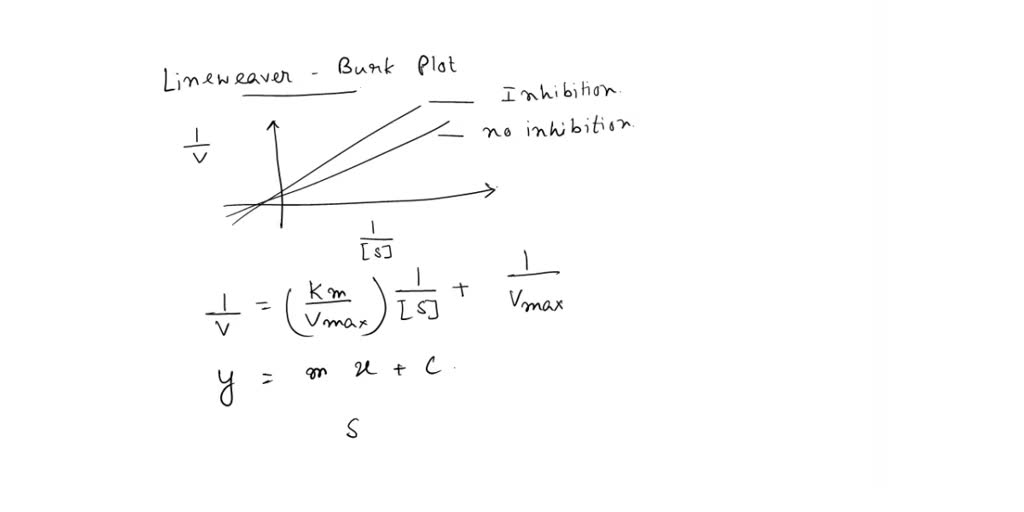 Lineweaver - Burk Plot
Inhibition.
no inhibition.
1/V
1/[S]
1/V = (Km/Vmax) 1/[S] + 1/Vmax
y = m x + c.
S